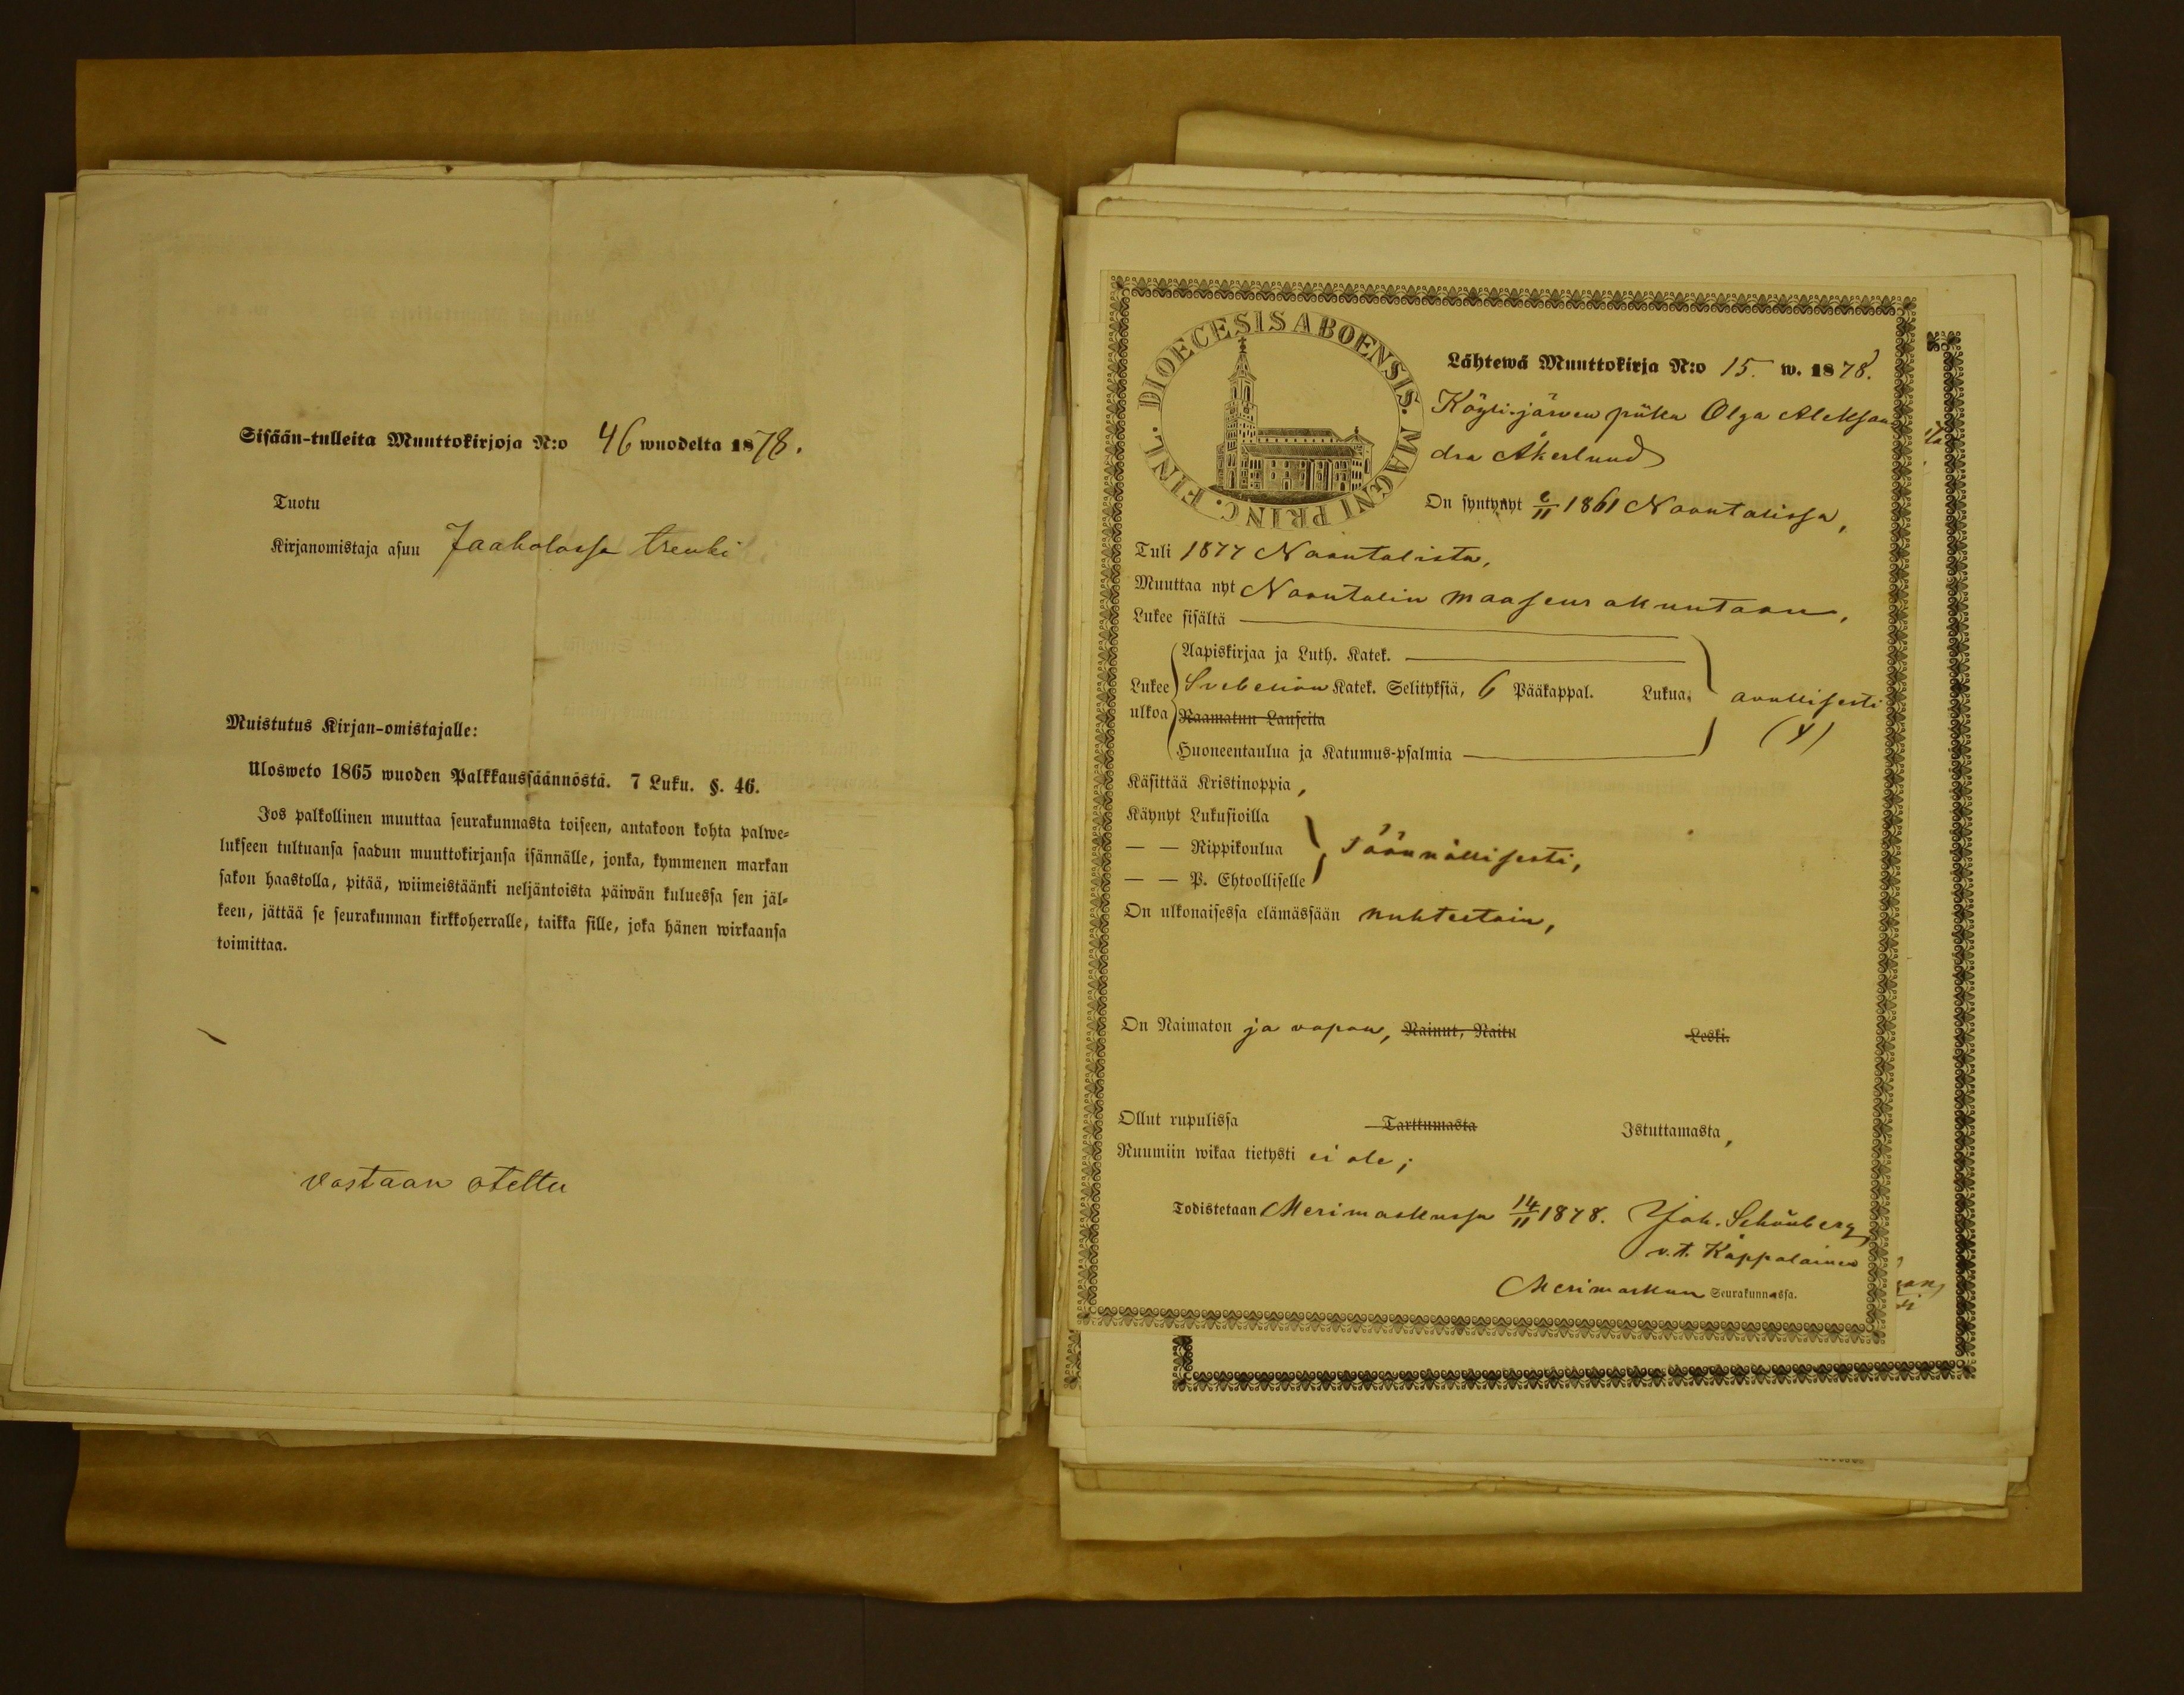 Sisään-tulleita Muuttokirjoja N:o 46 wuodelta 1878.
Tuotu
Kirjanomistaja asuu Jaakolassa trenki
Muistutus Kirjan-omistajalle:
Ulosweto 1865 wuoden Palkkaussäännöstä. 7 Luku. §. 46.
Jos palkollinen muuttaa seurakunnasta toiseen, antakoon kohta palwe-
lukseen tultuansa saadun muuttokirjansa isännälle, jonka, kymmenen markan
sakon haastolla, pitää, wiimeistäänki neljäntoista päiwän kuluessa sen jäl-
keen, jättää se seurakunnan kirkkoherralle, taikka sille, joka hänen wirkaansa
toimittaa.
vastaan otettu
DIOECESIS ABOENSIS. MAGNI PRINC. FINL.
Lähtewä Muuttokirja N:o 15. w. 1878.
Köyli-järven piika Olga Aleksan
dra Åkerlund
On syntynyt 2/11 1861 Naantalissa,
Tuli 1877 Naantalista,
Muuttaa nyt Naantalin maaseurakuntaan,
Lukee sisältä
Aapiskirjaa ja Luth. Katek.
Lukee ulkoa Svebeliön Katek. Selityksiä, 6 Pääkappal. Lukua. avullisesti
Raamatun Lauseita (4)
Huoneentaulua ja Katumus-psalmia
Käsittää Kristinoppia,
Käynyt Lukusioilla
— — Rippikoulua säännöllisesti,
— — P. Ehtoolliselle
On ulkonaisessa elämässään nuhteetoin,
On Naimaton ja vapaa, Nainut, Naitu Leski.
Ollut rupulissa Tarttumasta Istuttamasta,
Ruumiin wikaa tietysti ei ole;
Todistetaan Merimaskussa 14/11 1878. Joh. Schönberg
v.t. Kappalainen
Merimaskun Seurakunnassa.